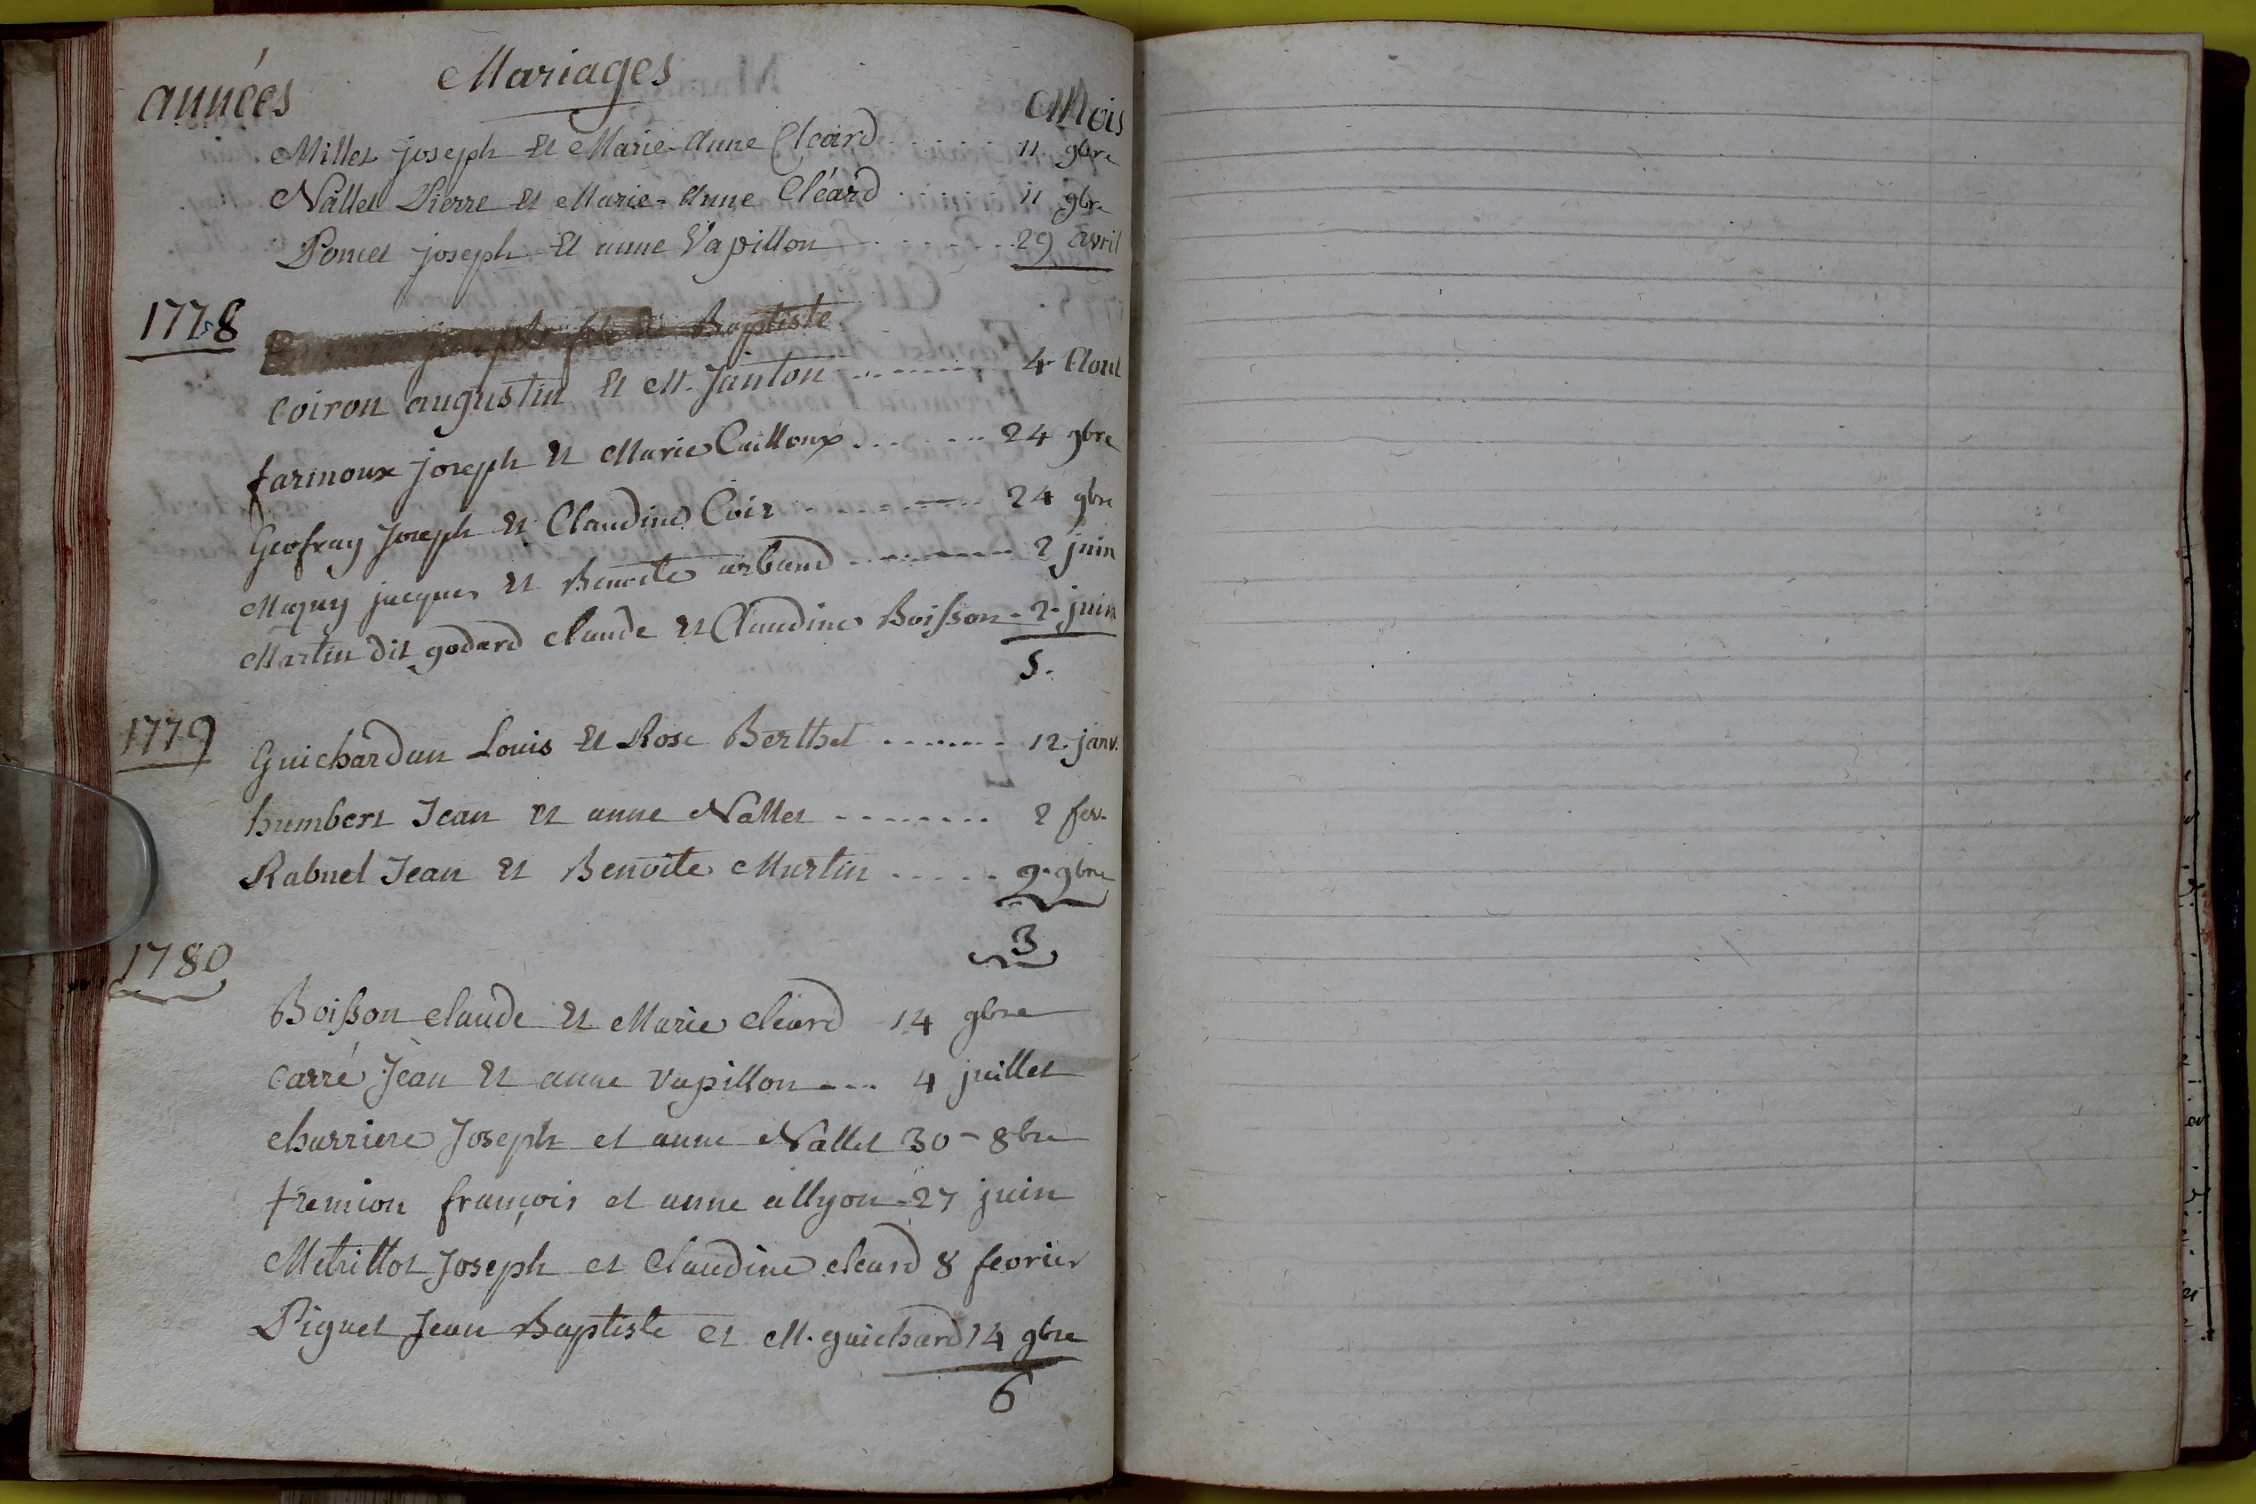 Mariages
années
Mois
Millet joseph Et Marie-Anne Cleard ....... 11. 9bre
Nallet Pierre Et Marie-Anne Cléard ...... 11 9bre
Poncet joseph Et anne Vapillon ....... 29 avril
1778
joseph fils de Baptiste
Coiron augustin Et M. Janton .......... 4 Aout
farmoux joseph Et Marie Cailloux ....... 24 9bre
Geofray Joseph Et Claudine Coir .......... 24 9bre
Magny jacques Et Benoite arband .......... 2 juin
Martin dit godard claude Et Claudine Boisson - 2. juin
5.
1779
Guichardan Louis Et Rose Berthet ....... 12. janv.
humbert Jean et anne Nallet ........ 2 fev.
Rabuel Jean Et Benoite Martin ..... 9. 9bre
3
1780
Boisson claude Et Marie cléard 14 9bre
Carré Jean Et anne Vapillon --- 4 juillet
charriere Joseph et anne Nallet 30 - 8bre
fremion françois et anne allyon - 27 juin
Metrillot Joseph et Claudine cleard 8 fevrier
Piguet Jean Baptiste et M. guichard 14 9bre
6